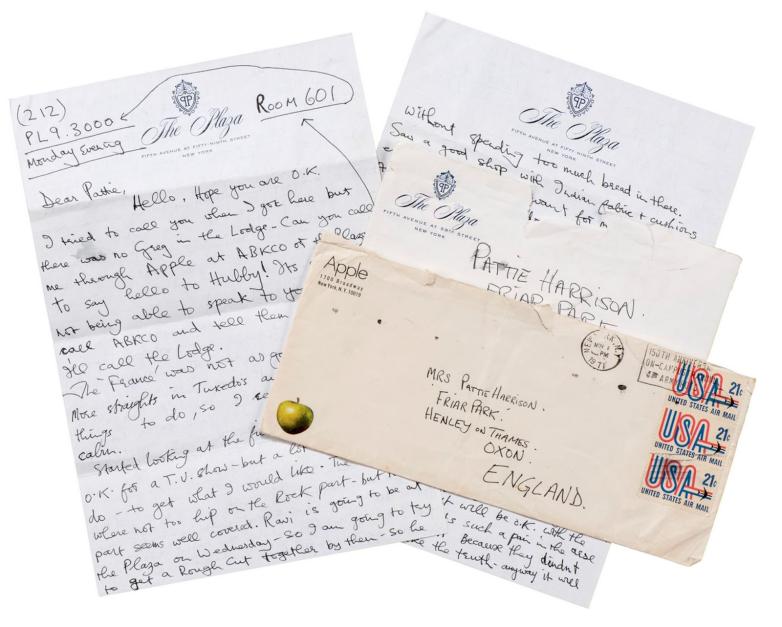 (212)
PL9.3000
Monday Evening
The Plaza
FIFTH AVENUE AT FIFTY-NINTH STREET
NEW YORK
ROOM 601
Dear Pattie,
Hello, Hope you are O.K.
I tried to call you when I got here but
there was no Greg in the Lodge - Can you call
me through Apple at ABKCO or the Plaza
to say hello to Hubby! Its
not being able to speak to yo
call ABKCO and tell them
I'll call the Lodge.
The 'France' was not as go
More straights in Tuxedo's an
things to do, so I
calm.
Started looking at the fi
O.K. for a T.V. show - but a lot
do - to get what I would like - The
where not too hip on the Rock part - but th
part seems well covered. Ravi is going to be at
the Plaza on Wednesday - so I am going to try
to get a Rough Cut together by then - so he
The Plaza
FIFTH AVENUE AT FIFTY-NINTH STREET
NEW YORK
without spending too much bread in there.
Saw a good shop with Indian fabric & cushions
want for
The Plaza
FIFTH AVENUE AT 59TH STREET
NEW YORK
PATTIE HARRISON.
FRIAR PARK
Apple
1700 Broadway
New York, N.Y. 10019
NEW YORK, N.Y.
PM
1971
150TH ANNIVERS
ON-CAMP
ARM
MRS PATTIE HARRISON.
'FRIAR PARK'.
HENLEY ON THAMES.
OXON.
ENGLAND.
USA 21c
UNITED STATES AIR MAIL
USA 21c
UNITED STATES AIR MAIL
USA 21c
UNITED STATES AIR MAIL
it will be O.K. with the
is such a pain in the arse
Because they didn't
the truth - anyway it will